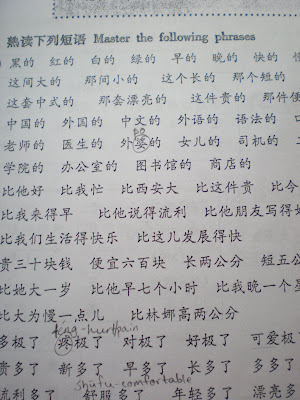 熟读下列短语 Master the following phrases
黑的 红的 白的 绿的 早的 晚的 快的
这间大的 那间小的 这个长的 那个短的
这套中式的 那套漂亮的 这件贵的 那件便
中国的 外国的 中文的 外语的 语法的
老师的 医生的 外婆的 女儿的 司机的
学院的 办公室的 图书馆的 商店的
比他好 比我忙 比西安大 比这件贵 比今
比我来得早 比他说得流利 比他朋友写得好
比我们生活得快乐 比这儿发展得快
贵三十块钱 便宜六百块 长两公分 短五公
比她大一岁 比他早七个小时 比我晚一个星
比大为慢一点儿 比林娜高两公分
teng - hurt/pain
多极了 疼极了 对极了 好极了 可爱极
贵多了 新多了 早多了 长多了 多多了
shufu - comfortable
流利多了 舒服多了 年轻多了 漂亮多